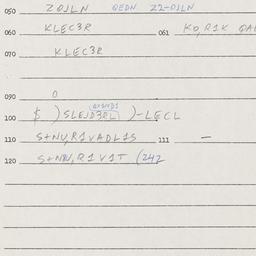 050 ZQJLN QEDN 22-DJLN
060 KLEC3R 061 KD,R1K
070 KLEC3R
090 0
100 $ )SLEJD3RL )-LECL
110 S+NV,R1VADL1S 111 -
120 S+NV,R1V1T (242